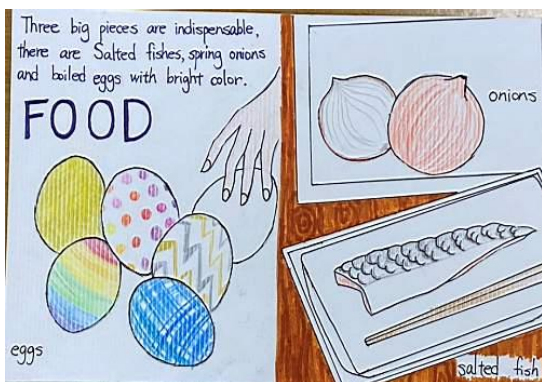 Three big pieces are indispensable,
there are Salted fishes, spring onions
and boiled eggs with bright color.
FOOD
eggs
onions
salted fish